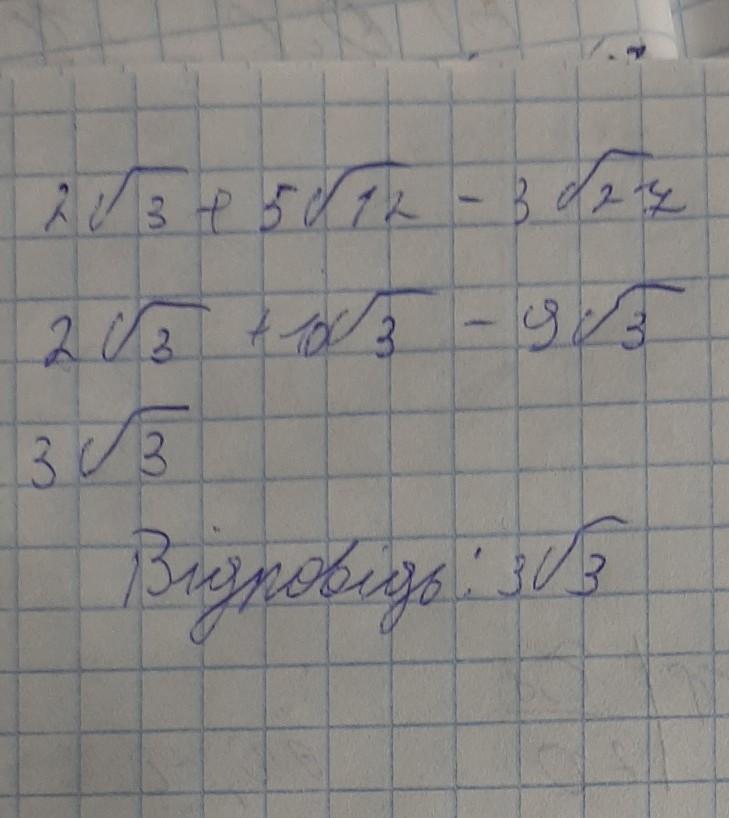 2√3 + 5√12 - 3√27
2√3 + 10√3 - 9√3
3√3
Відповідь: 3√3